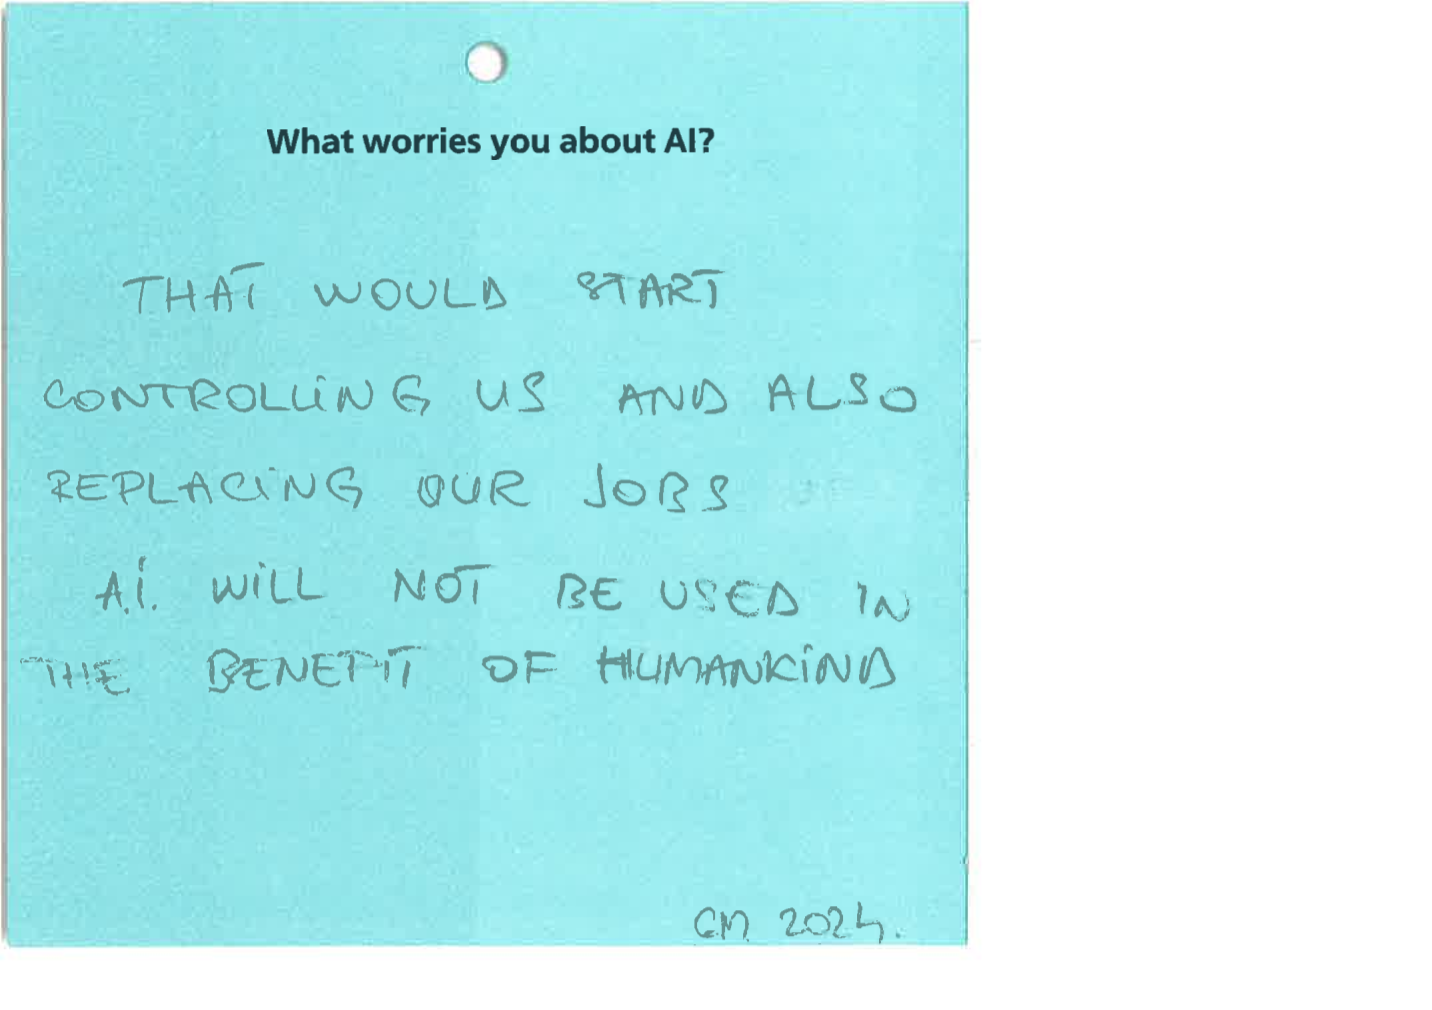 What worries you about AI?
THAT WOULD START
CONTROLLING US AND ALSO
REPLACING OUR JOBS
A.I. WILL NOT BE USED IN
THE BENEFIT OF HUMANKIND
CM 2024.